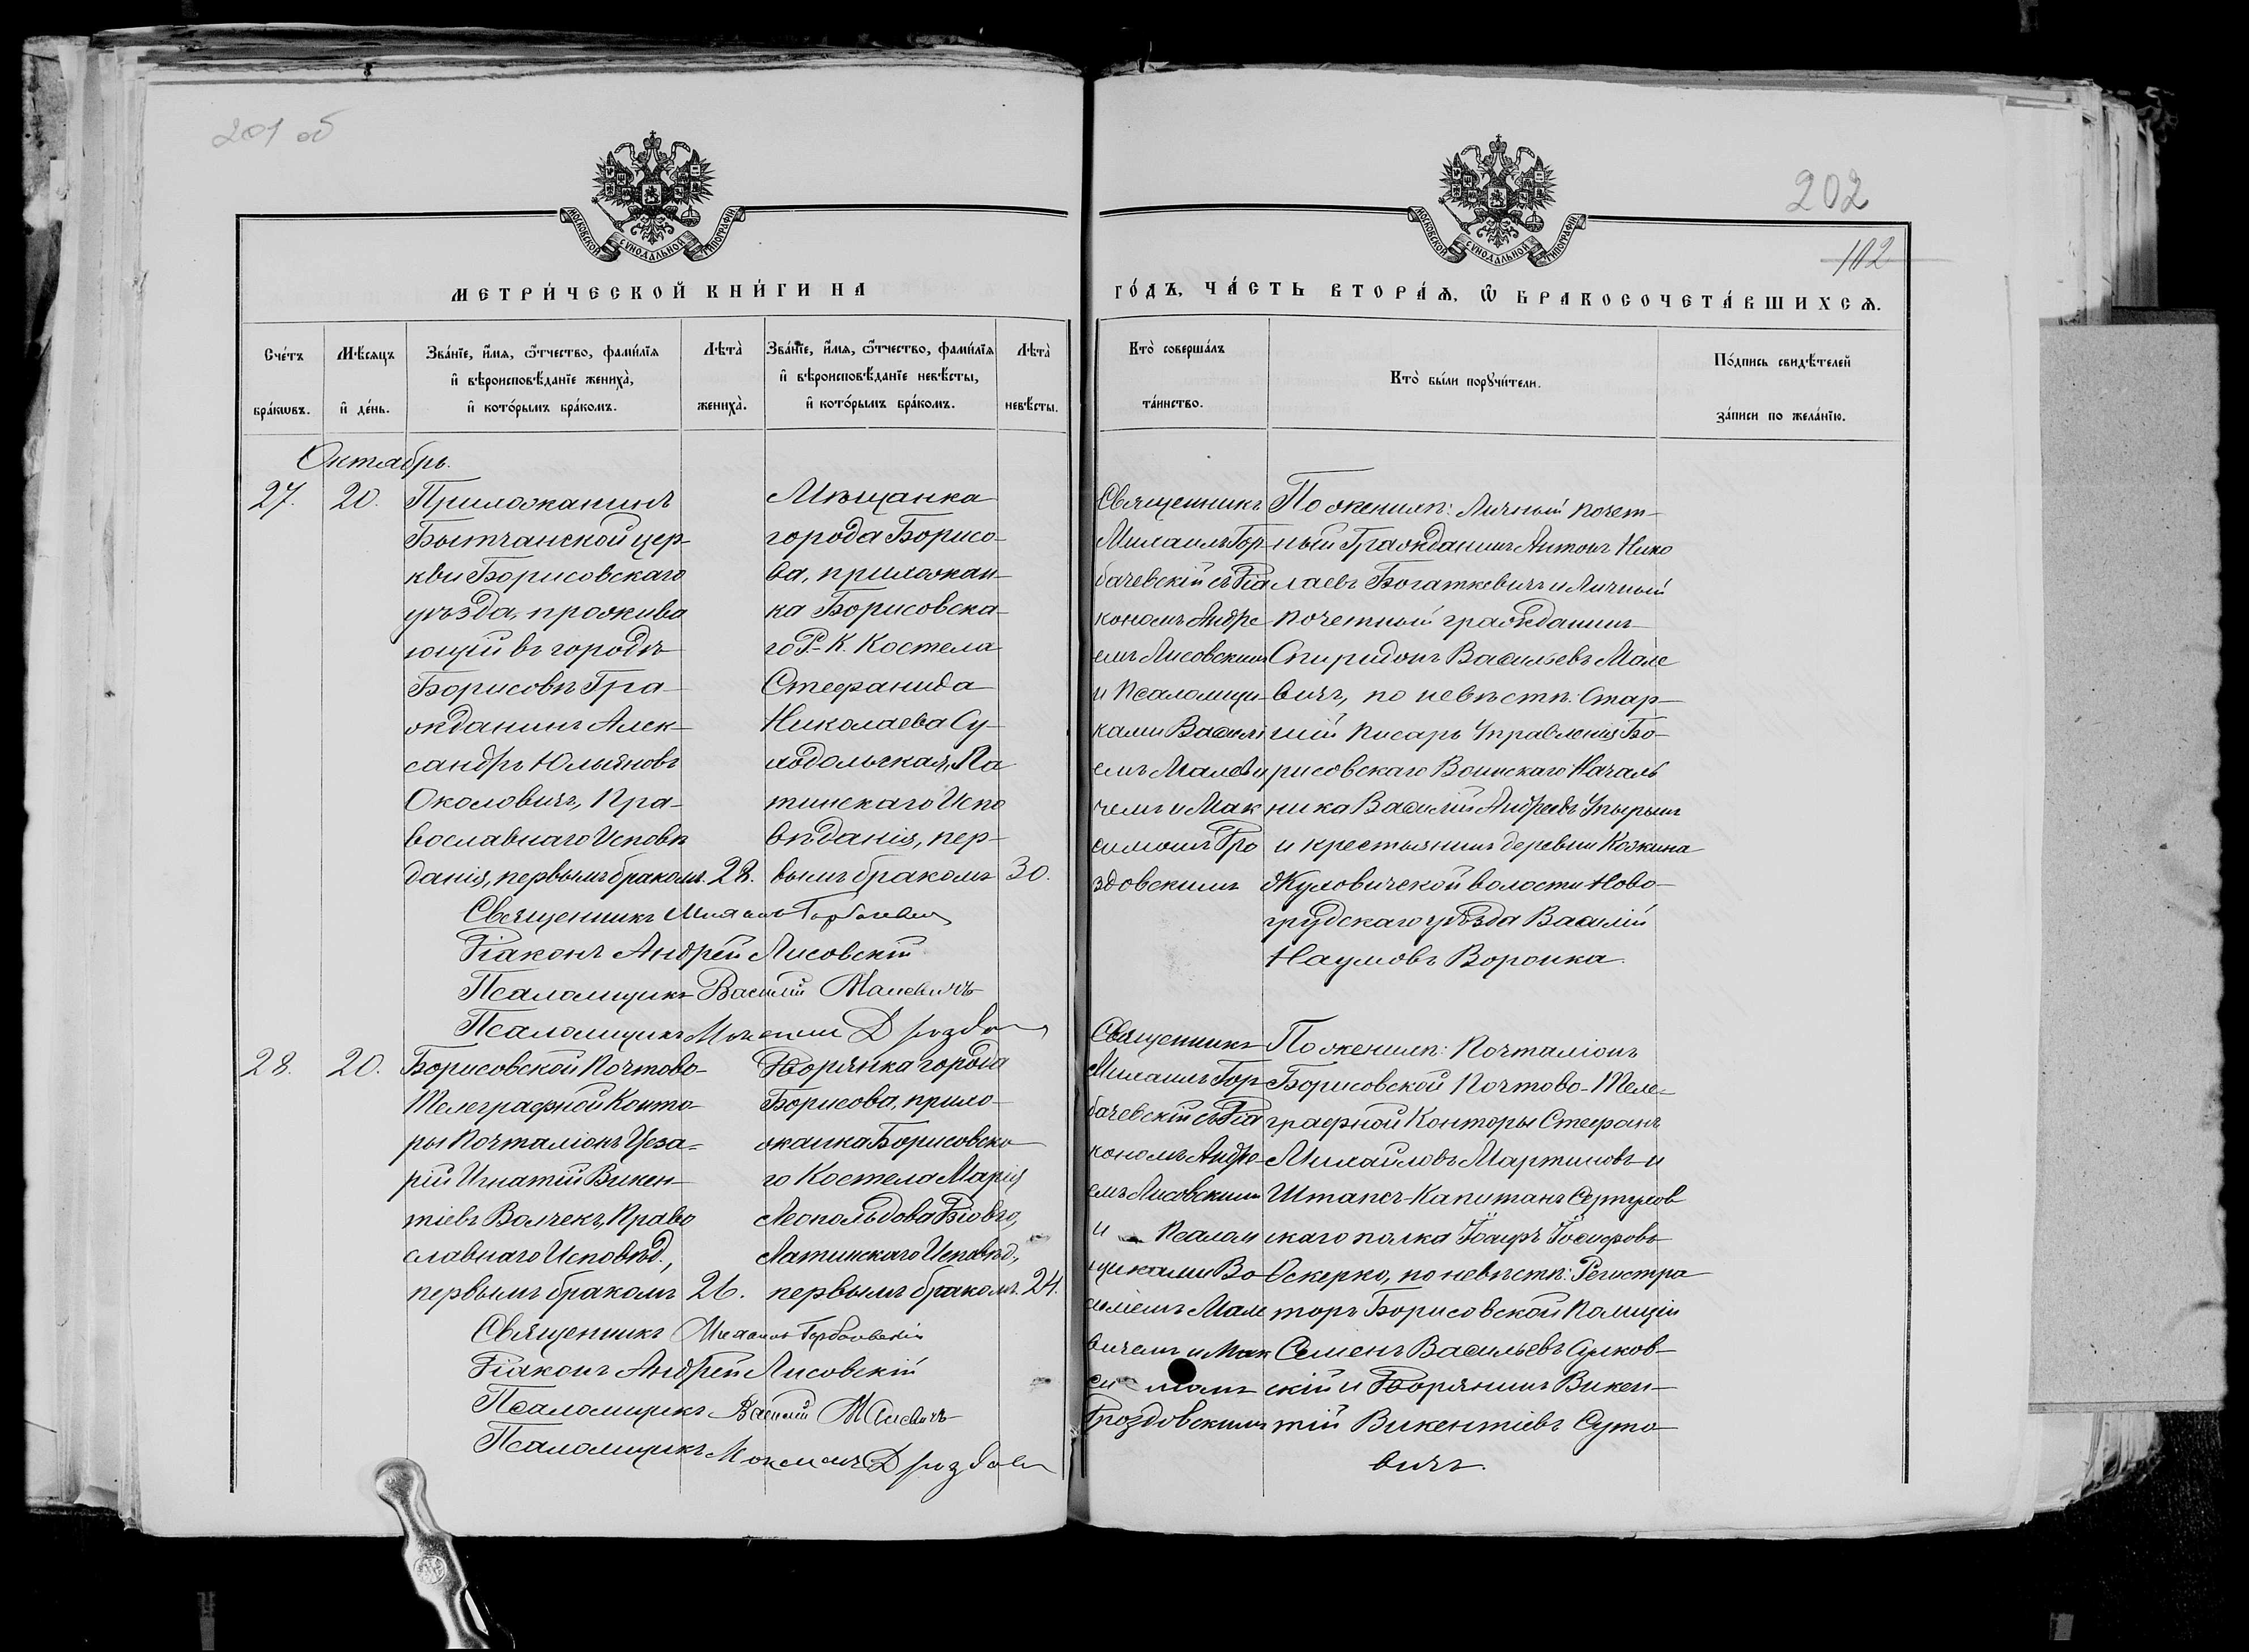 201 об
МОСКОВСКОЙ СѴНОДАЛЬНОЙ ТИПОГРАФІИ
МЕТРИ́ЧЕСКОЙ КНИ́ГИ НА
Сче́тъ бра́кωвъ.
Мѣ́сяцъ и҆ де́нь.
Зва́нїе, и҆́мя, ѻ҆́тчество, фами́лїя и҆ вѣроисповѣ́данїе жениха̀, и҆ кото́рымъ бра́комъ.
Лѣта̀ жениха̀.
Зва́нїе, и҆́мя, ѻ҆́тчество, фами́лїя и҆ вѣроисповѣ́данїе невѣ́сты, и҆ кото́рымъ бра́комъ.
Лѣта̀ невѣ́сты.
Октябрь.
27.
20.
Прихожанинъ
Бытчанской цер-
кви Борисовскаго
уѣзда, прожива
ющій въ городѣ
Борисовѣ Гра-
жданинъ Алек-
сандръ Юльяновъ
Околовичъ, Пра-
вославнаго Исповѣ
данія, первымъ бракомъ.
28.
Мѣщанка
города Борисо-
ва, прихожан-
ка Борисовска-
го Р.-К. Костела
Стефанида
Николаева Су-
ходольская, Ла
тинскаго Испо
вѣданія, пер-
вымъ бракомъ
30.
Священникъ Михаилъ Горбачевскій
Діаконъ Андрей Лисовскій
Псаломщикъ Василій Малевичъ
Псаломщикъ Максимъ Дроздов
28.
20.
Борисовской Почтово-
Телеграфной Конто-
ры Почталіонъ Цеза-
рій Игнатій Викен-
тіевъ Волчекъ, Право
славнаго Исповѣд.,
первымъ бракомъ
26.
Дворянка города
Борисова, прихо-
жанка Борисовска-
го Костела Марія
Леопольдова
Латинскаго Исповѣд.,
первымъ бракомъ.
24.
Священникъ Михаилъ Горбачевскій
Діаконъ Андрей Лисовскій
Псаломщикъ Василій Малевичъ
Псаломщикъ Максимъ Дроздов
202
102
МОСКОВСКОЙ СѴНОДАЛЬНОЙ ТИПОГРАФІИ
ГО́ДЪ, ЧА́СТЬ ВТОРА́Ѧ, Ѡ҆ БРАКОСОЧЕТА́ВШИХСѦ.
Кто̀ соверша́лъ та́инство.
Кто̀ бы́ли порꙋчи́тели.
По́дпись свидѣ́телей за́писи по жела́нїю.
Священникъ
Михаилъ Гор-
бачевскій съ Діа
кономъ Андре
емъ Лисовскимъ
и Псаломщи-
ками Василі
емъ Малеви
чемъ и Мак
симомъ Дро
здовскимъ
По женихѣ: Личный почет-
ный Гражданинъ Антонъ Нико
лаевъ Богаткевичъ и Личный
почетный гражданинъ
Спиридонъ Васильевъ Мале
вичъ, по невѣстѣ: Стар-
шій Писарь Управленія Бо-
рисовскаго Воинскаго Началь
ника Василій Андреевъ
и крестьянинъ деревни
волости Ново-
грудскаго уѣзда Василій
Наумовъ Воронка.
Священникъ
Михаилъ Гор-
бачевскій съ Діа
кономъ Андре-
емъ Лисовскимъ
и Псалом
щиками Ва-
силіемъ Мале
вичемъ и Мак
симомъ
Дроздовскимъ
По женихѣ: Почталіонъ
Борисовской Почтово-Теле-
графной Конторы Стефанъ
Михайловъ Мартиновъ и
Штапсъ-Капитанъ Серпухов
скаго полка Іосифовъ
Оскерко, по невѣстѣ: Регистра
торъ Борисовской Полиціи
Семенъ Васильевъ Сулков-
скій и Дворянинъ Викен-
тій Викентіевъ Суто-
вичъ.